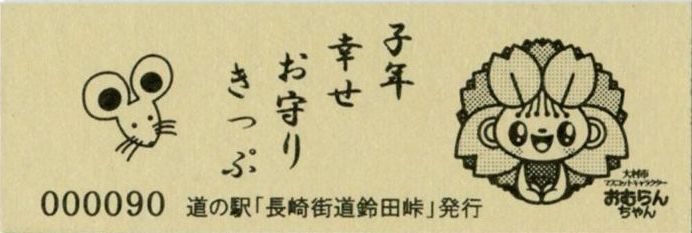 子年
幸せ
お守り
きっぷ
大村市
マスコットキャラクター
おむらん
ちゃん
000090 道の駅「長崎街道鈴田峠」発行